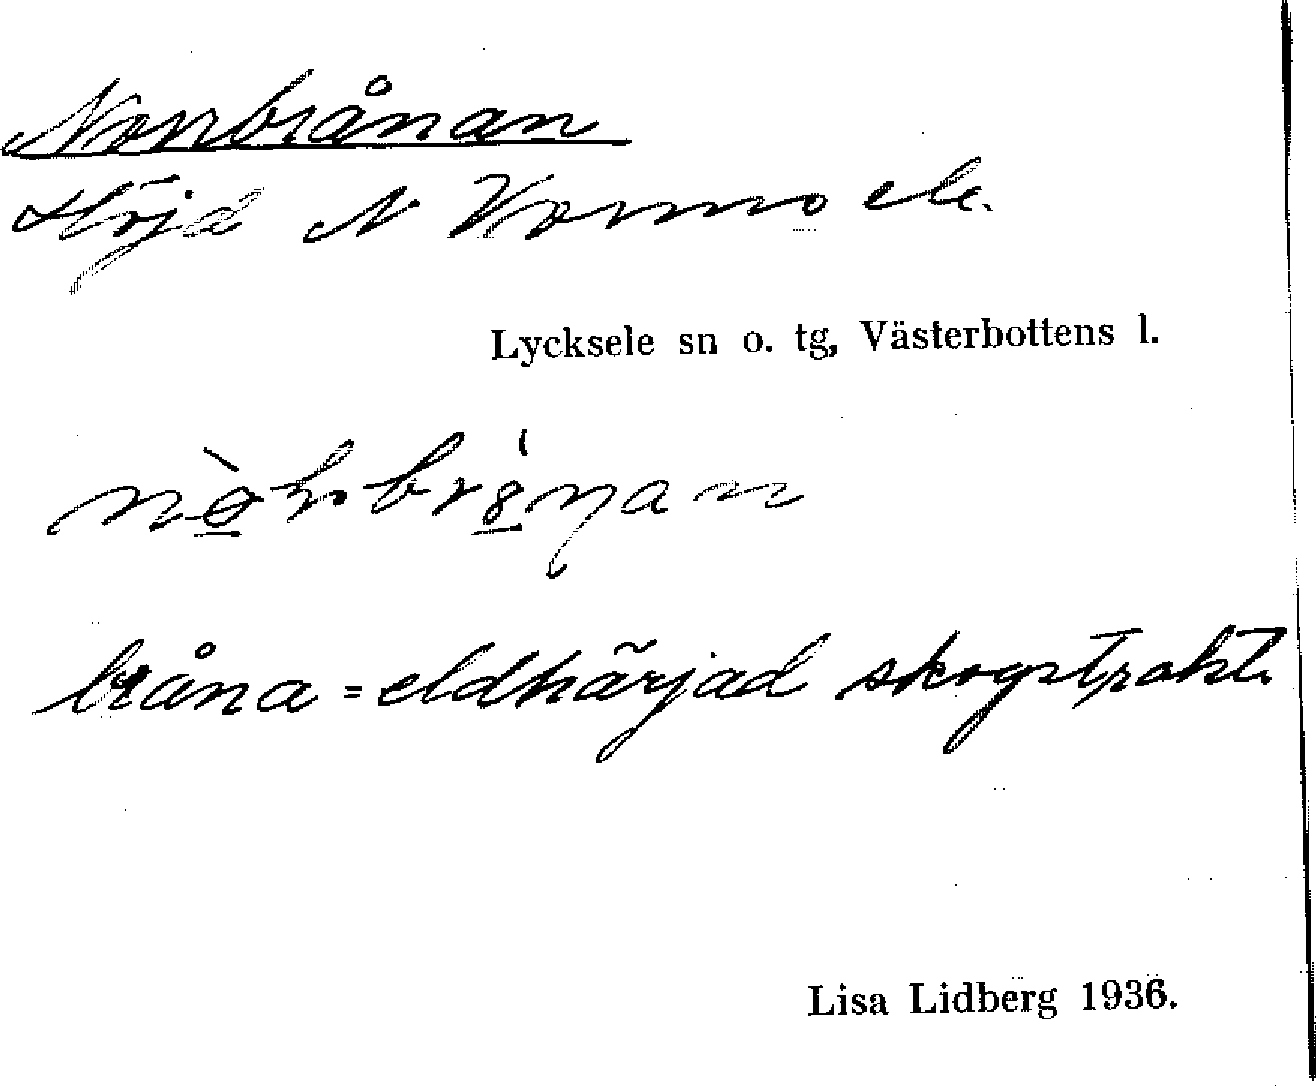 Norrbrånan
Höjd N Vormsele.
Lycksele sn o. tg, Västerbottens l.
bråna = eldhärjad skogstrakt.
Lisa Lidberg 1936.